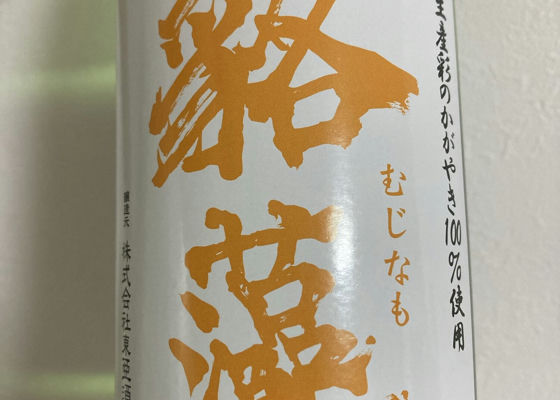 生産彩のかがやき100%使用
むじなも
貉藻
醸造元 株式会社東亜酒